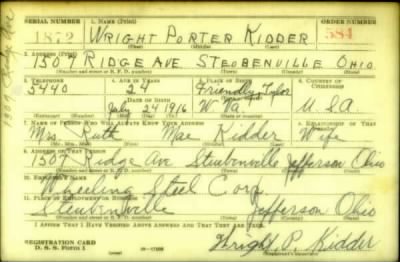 SERIAL NUMBER 1. NAME (Print) ORDER NUMBER
1872 WRIGHT PORTER KIDDER 584
(First) (Middle) (Last)
2. ADDRESS (Print)
1507 RIDGE AVE STEOBENVILLE OHIO.
(Number and street or R. F. D. number) (Town) (County) (State)
3. TELEPHONE 4. AGE IN YEARS 5. PLACE OF BIRTH 6. COUNTRY OF CITIZENSHIP
5440 24 Friendly Tyler
DATE OF BIRTH
July 24 1916 W. Va. U.S.A
7. NAME OF PERSON WHO WILL ALWAYS KNOW YOUR ADDRESS 8. RELATIONSHIP OF THAT PERSON
Mrs. Ruth Mae Kidder Wife
9. ADDRESS OF THAT PERSON
1507 Ridge Ave Steubenville Jefferson Ohio
(Number and street or R. F. D. number) (Town) (County) (State)
10. EMPLOYER'S NAME
Wheeling Steel Corp
11. PLACE OF EMPLOYMENT OR BUSINESS
Steubenville Jefferson Ohio
(Number and street or R. F. D. number) (Town) (County) (State)
I AFFIRM THAT I HAVE VERIFIED ABOVE ANSWERS AND THAT THEY ARE TRUE.
REGISTRATION CARD
D. S. S. Form 1
Wright P. Kidder